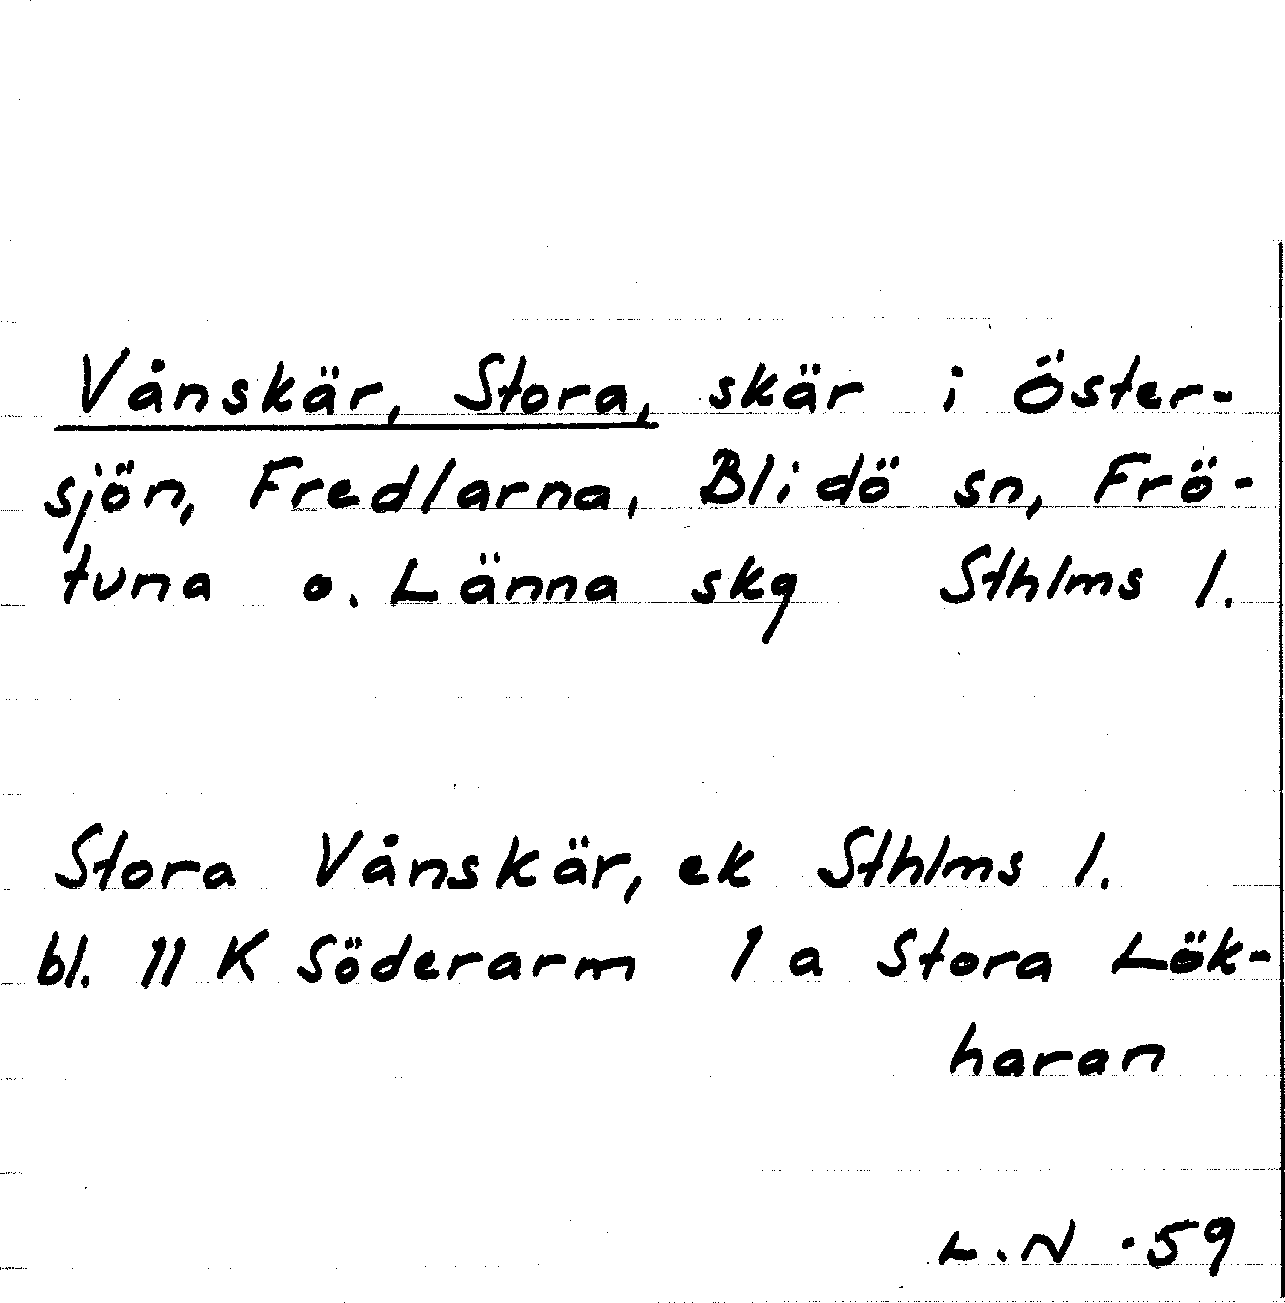 Vånskär, Stora, skär i Öster-
sjön, Fredlarna, Blidö sn, Frö-
tuna o. Länna skg Sthlms l.
Stora Vånskär, ek Sthlms l.
bl. 11 K Söderarm 1 a Stora Lök-
haran
L.N -59